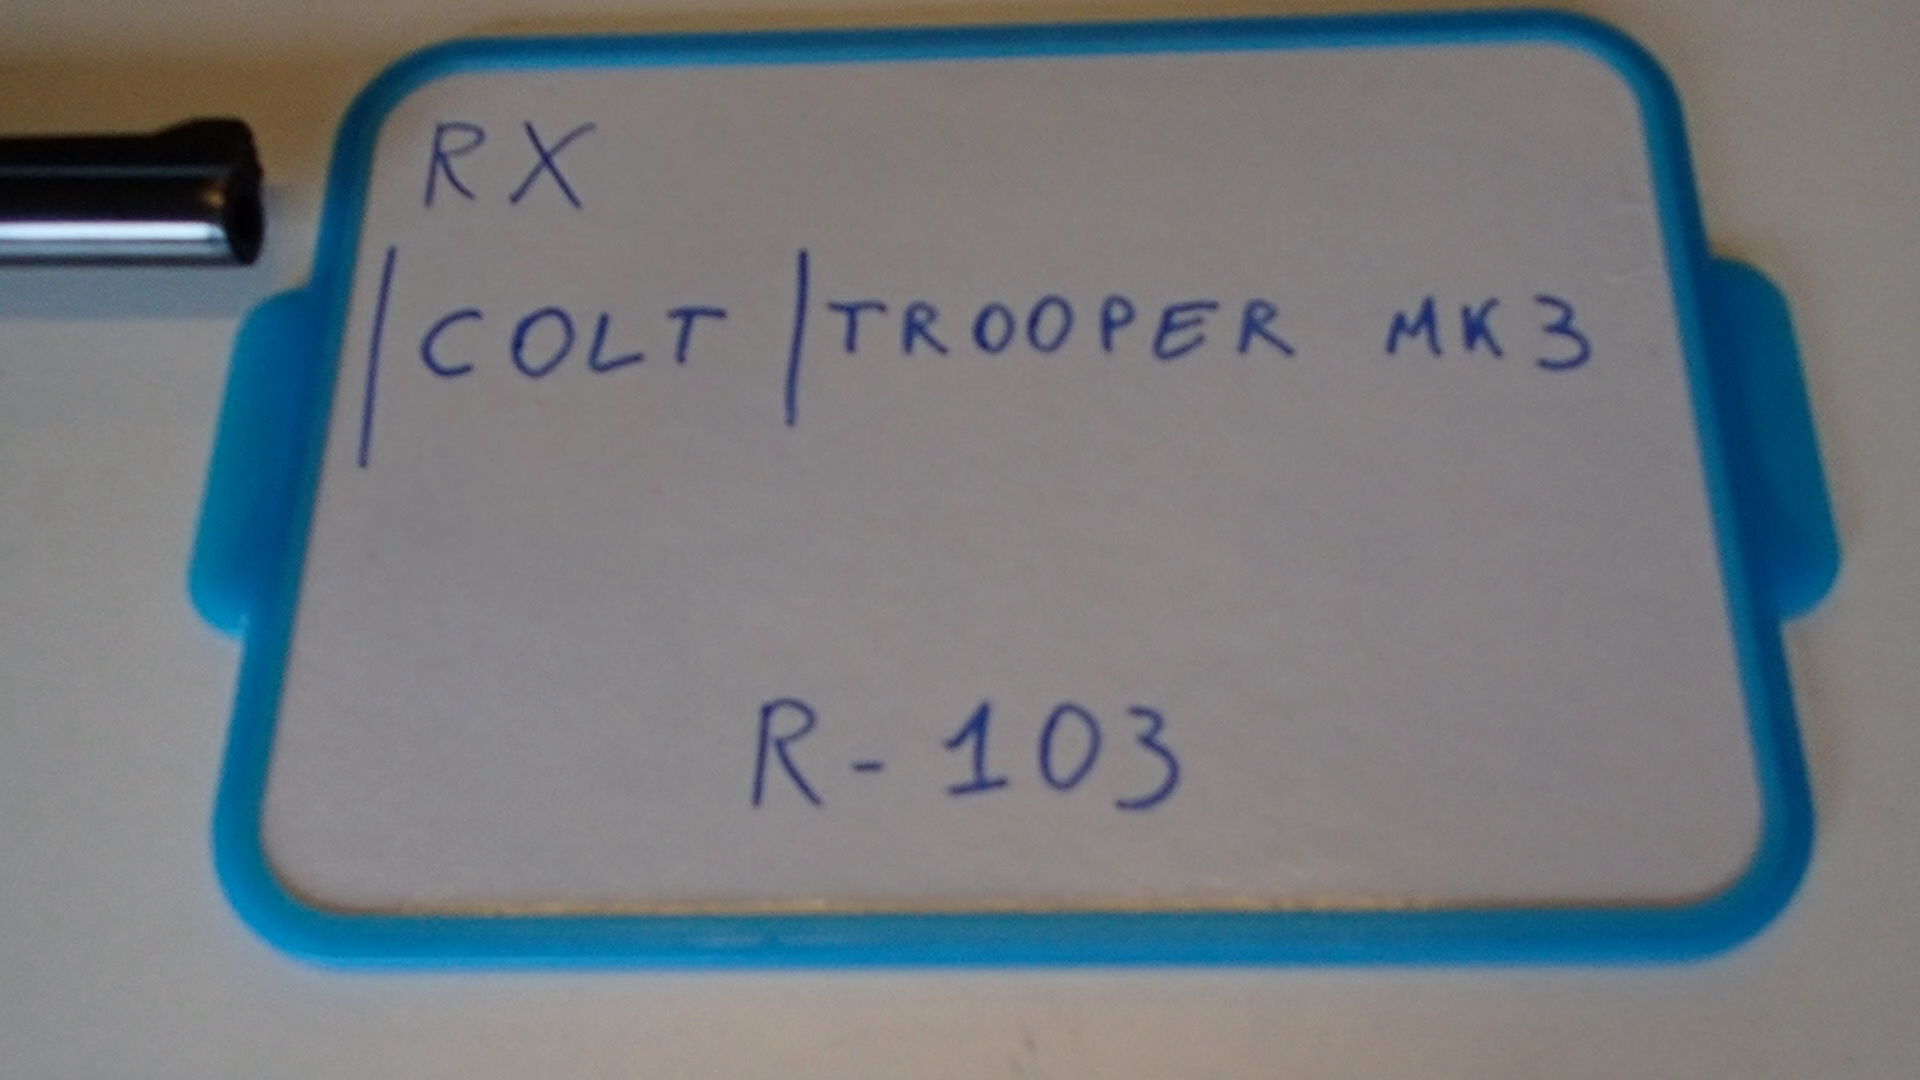 RX
|COLT |TROOPER MK3
R-103